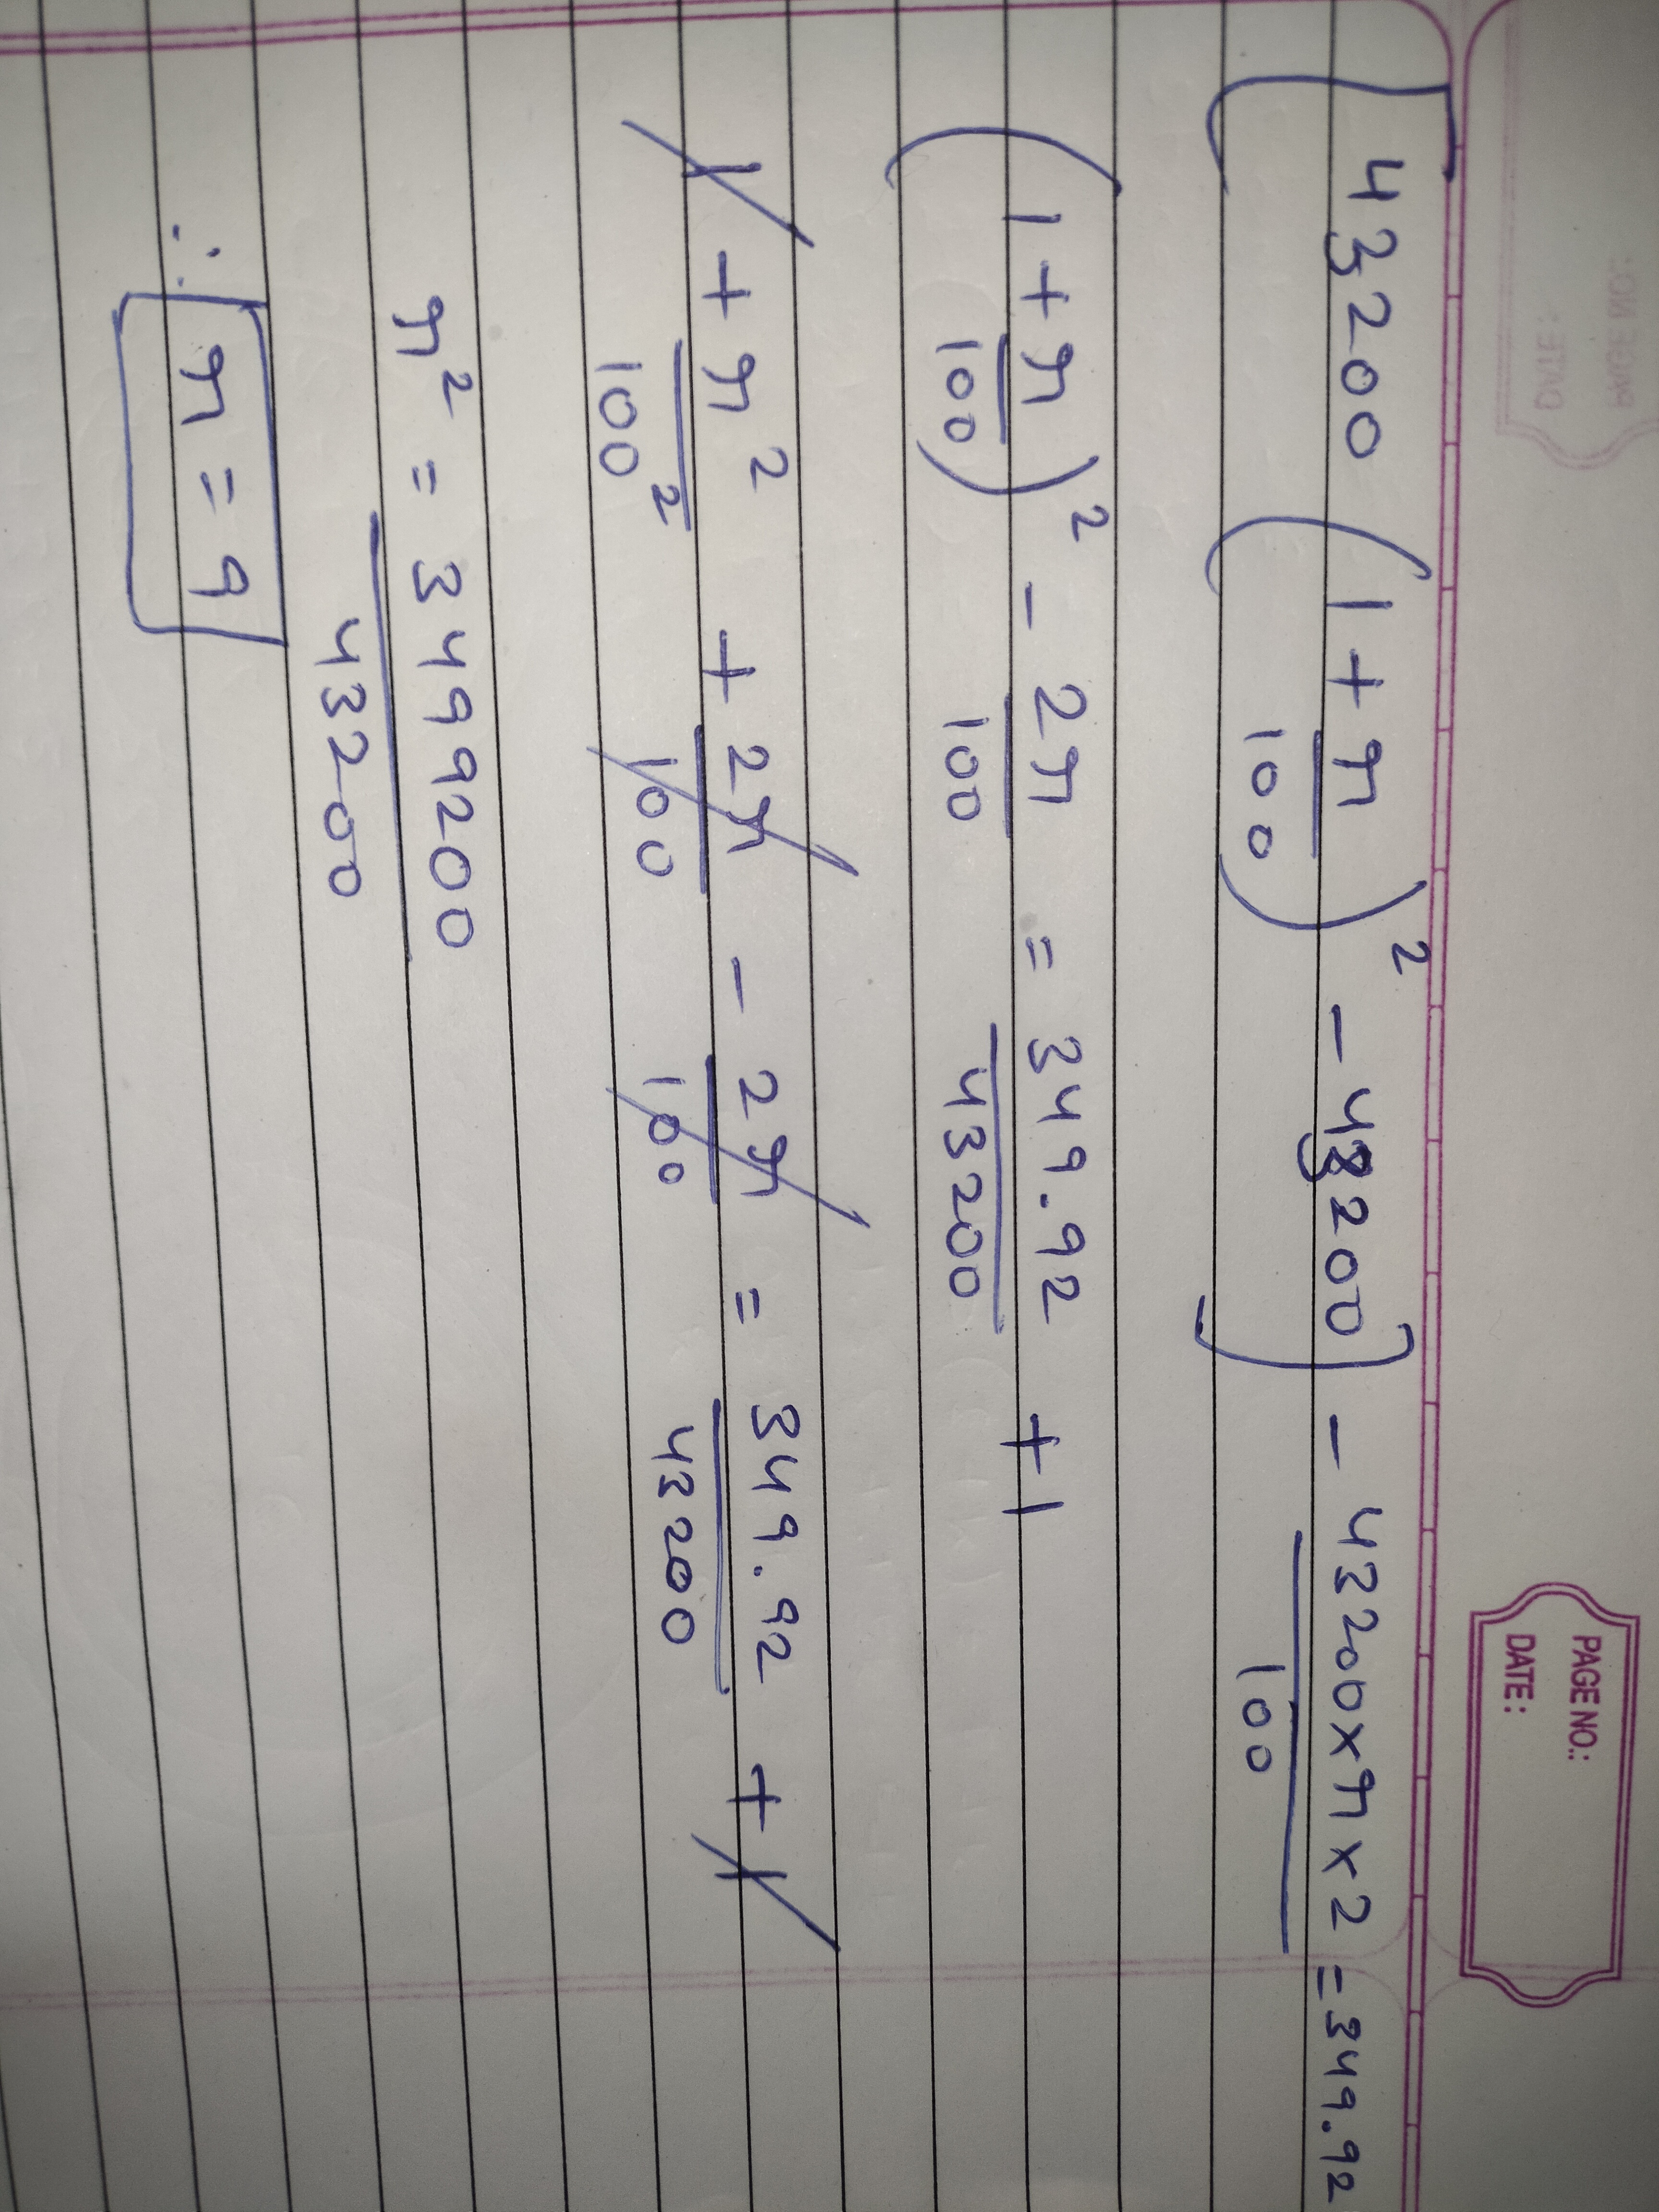 PAGE NO.:
DATE :
PAGE NO.:
DATE :
[43200 (1 + r/100)² - 43200] - 43200 x r x 2/100 = 349.92
(1 + r/100)² - 2r/100 = 349.92/43200 + 1
1 + r²/100² + 2r/100 - 2r/100 = 349.92/43200 + 1
r² = 3499200/43200
∴ r = 9